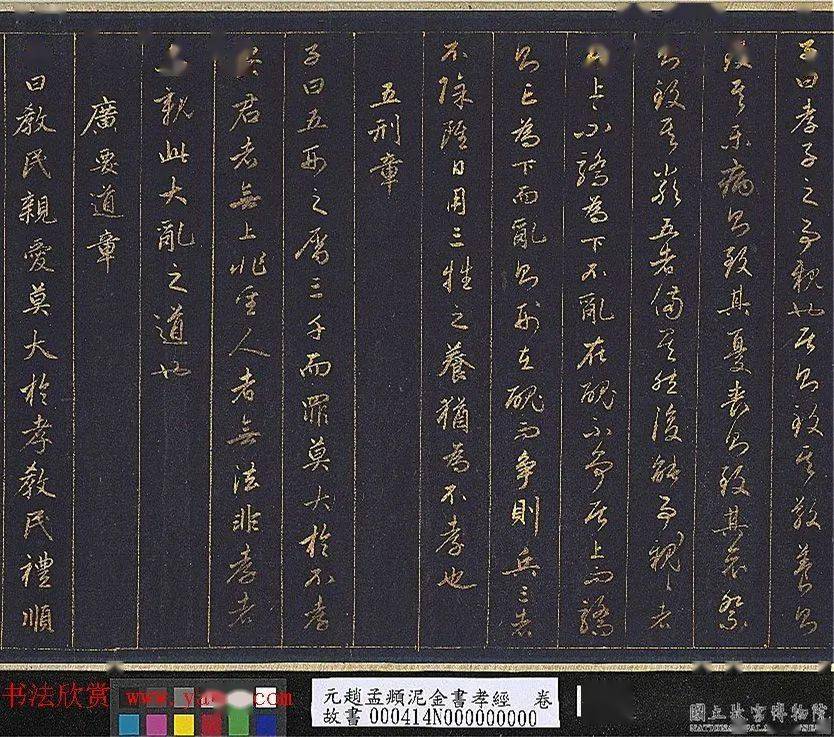 子曰孝子之事親也居則致其敬養則
致其樂病則致其憂喪則致其哀祭
則致其嚴五者備矣然後能事親〻者
居上不驕為下不亂在醜不爭居上而驕
則亡為下而亂則刑在醜而爭則兵三者
不除雖日用三牲之養猶為不孝也
五刑章
子曰五刑之屬三千而罪莫大於不孝
要君者無上非聖人者無法非孝者
無親此大亂之道也
廣要道章
曰教民親愛莫大於孝教民禮順
书法欣赏
元趙孟頫泥金書孝經 卷
故書 000414N000000000
國立故宮博物院
NATIONAL